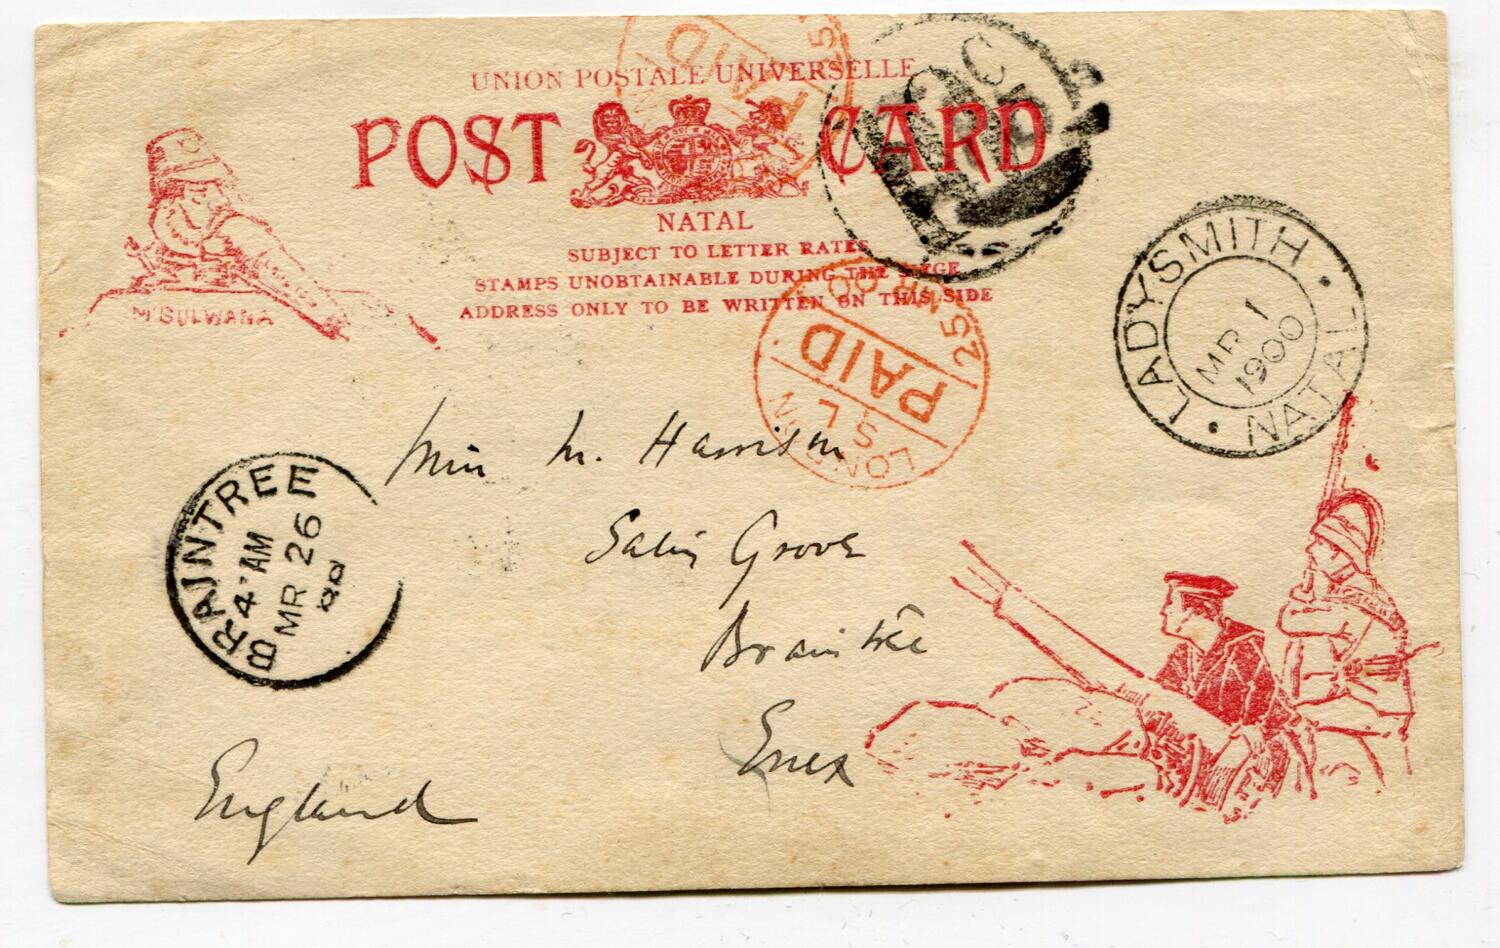 UNION POSTALE UNIVERSELLE
POST CARD
NATAL
SUBJECT TO LETTER RATES
STAMPS UNOBTAINABLE DURING THE SIEGE
ADDRESS ONLY TO BE WRITTEN ON THIS SIDE
M'BULWANA
PAID
25
LADYSMITH
MR 1
1900
NATAL
LONDON
S.L
PAID
25 MR 00
BRAINTREE
4 AM
MR 26
00
Miss M. Harrison
Grove
Braintree
Essex
England